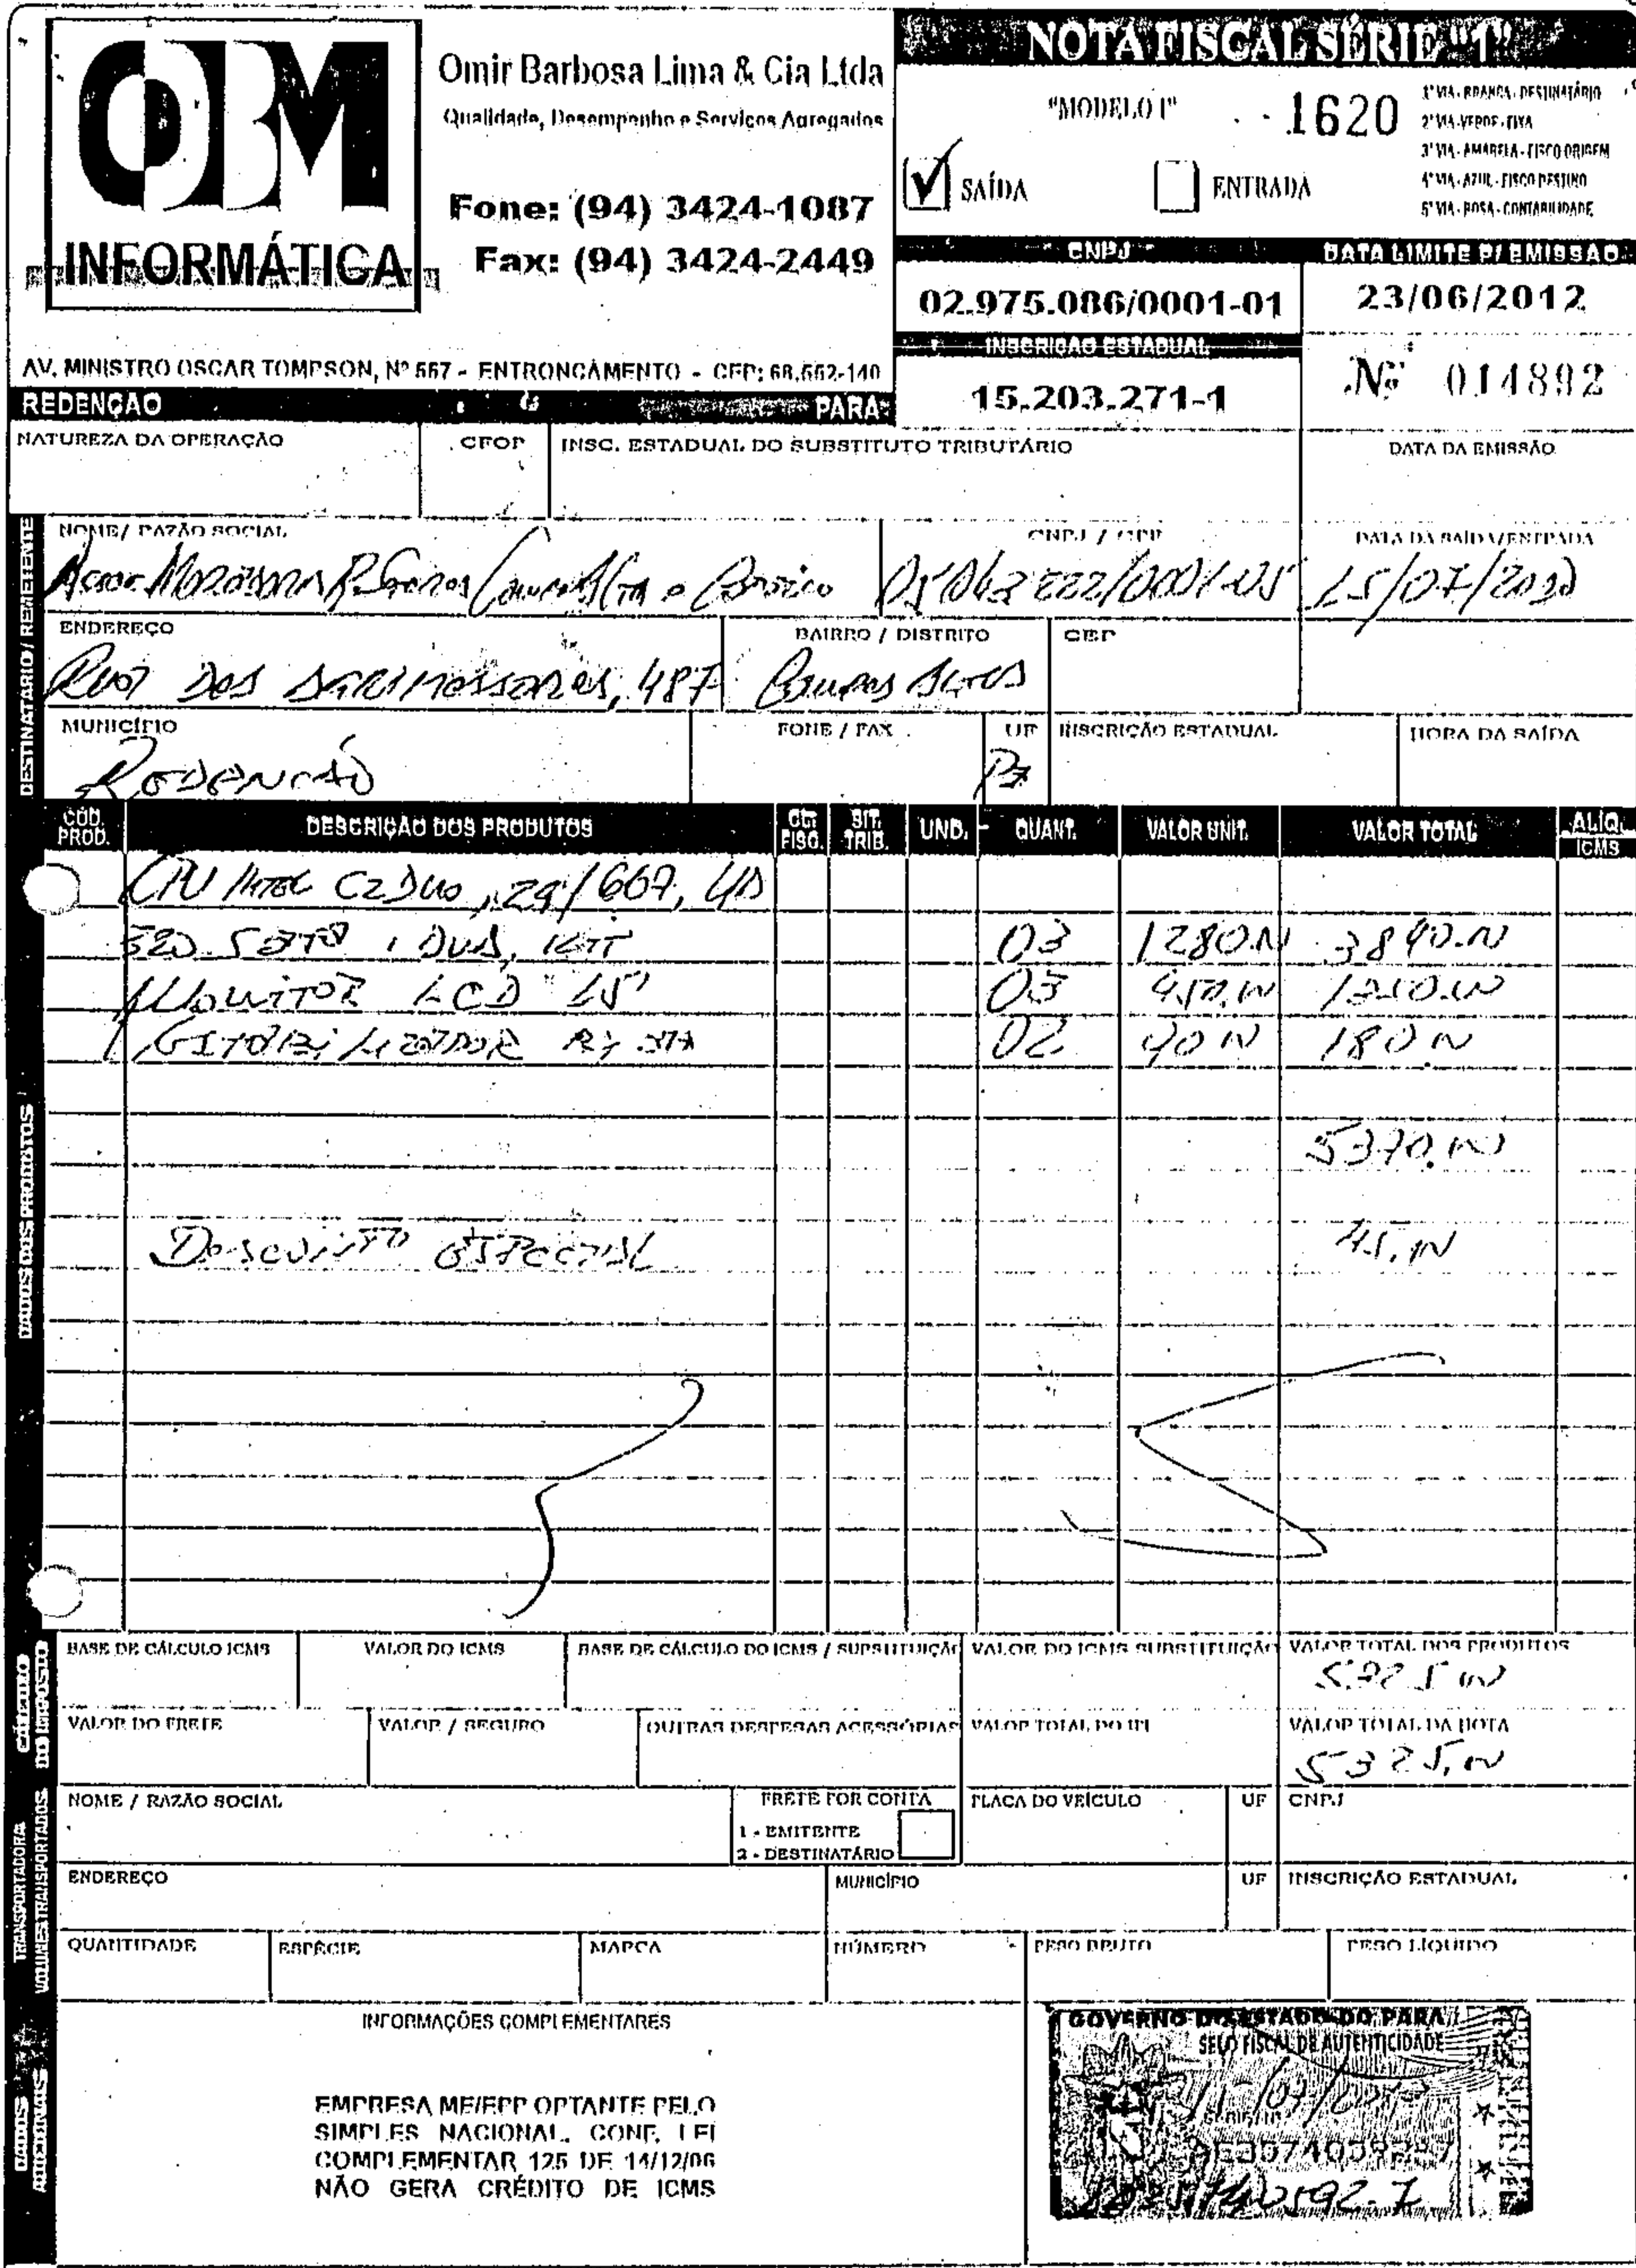 OBM
INFORMÁTICA
Omir Barbosa Lima & Cia Ltda
Qualidade, Desempenho e Serviços Agregados
Fone: (94) 3424-1087
Fax: (94) 3424-2449
AV. MINISTRO OSCAR TOMPSON, Nº 557 - ENTRONCAMENTO - CEP: 68.552-140
REDENÇÃO PARÁ
NOTA FISCAL SÉRIE "1"
"MODELO 1" 1620
1ª VIA - BRANCA - DESTINATÁRIO
2ª VIA - VERDE - FIXA
3ª VIA - AMARELA - FISCO ORIGEM
4ª VIA - AZUL - FISCO DESTINO
5ª VIA - ROSA - CONTABILIDADE
SAÍDA ENTRADA
CNPJ DATA LIMITE P/ EMISSÃO
02.975.086/0001-01 23/06/2012
INSCRIÇÃO ESTADUAL
15.203.271-1 Nº 014892
NATUREZA DA OPERAÇÃO CFOP INSC. ESTADUAL DO SUBSTITUTO TRIBUTÁRIO DATA DA EMISSÃO
DESTINATÁRIO / REMETENTE
NOME / RAZÃO SOCIAL CNPJ / CPF DATA DA SAÍDA/ENTRADA
15/07/2010
ENDEREÇO BAIRRO / DISTRITO CEP
Rua Dos 487
MUNICÍPIO FONE / FAX UF INSCRIÇÃO ESTADUAL HORA DA SAÍDA
Redenção Pa
CÓD. PROD. DESCRIÇÃO DOS PRODUTOS CL. FISC. SIT. TRIB. UND. QUANT. VALOR UNIT. VALOR TOTAL ALÍQ. ICMS
CPU Intel C2Duo, 2g/667,
320 Sata, DVD, Kit 03 1280.00 3840.00
Monitor LCD 15" 03 450.00 1350.00
Estabilizador 02 90.00 180.00
5370.00
Desconto Especial 45.00
DADOS DOS PRODUTOS
CÁLCULO DO IMPOSTO
BASE DE CÁLCULO ICMS VALOR DO ICMS BASE DE CÁLCULO DO ICMS / SUBSTITUIÇÃO VALOR DO ICMS SUBSTITUIÇÃO VALOR TOTAL DOS PRODUTOS
5325.00
VALOR DO FRETE VALOR / SEGURO OUTRAS DESPESAS ACESSÓRIAS VALOR TOTAL DO IPI VALOR TOTAL DA NOTA
5325,00
TRANSPORTADORA VOLUMES TRANSPORTADOS
NOME / RAZÃO SOCIAL FRETE POR CONTA PLACA DO VEÍCULO UF CNPJ
1 - EMITENTE
2 - DESTINATÁRIO
ENDEREÇO MUNICÍPIO UF INSCRIÇÃO ESTADUAL
QUANTIDADE ESPÉCIE MARCA NÚMERO PESO BRUTO PESO LÍQUIDO
DADOS ADICIONAIS
INFORMAÇÕES COMPLEMENTARES
EMPRESA ME/EPP OPTANTE PELO
SIMPLES NACIONAL, CONF. LEI
COMPLEMENTAR 125 DE 14/12/06
NÃO GERA CRÉDITO DE ICMS
GOVERNO DO ESTADO DO PARÁ
SELO FISCAL DE AUTENTICIDADE